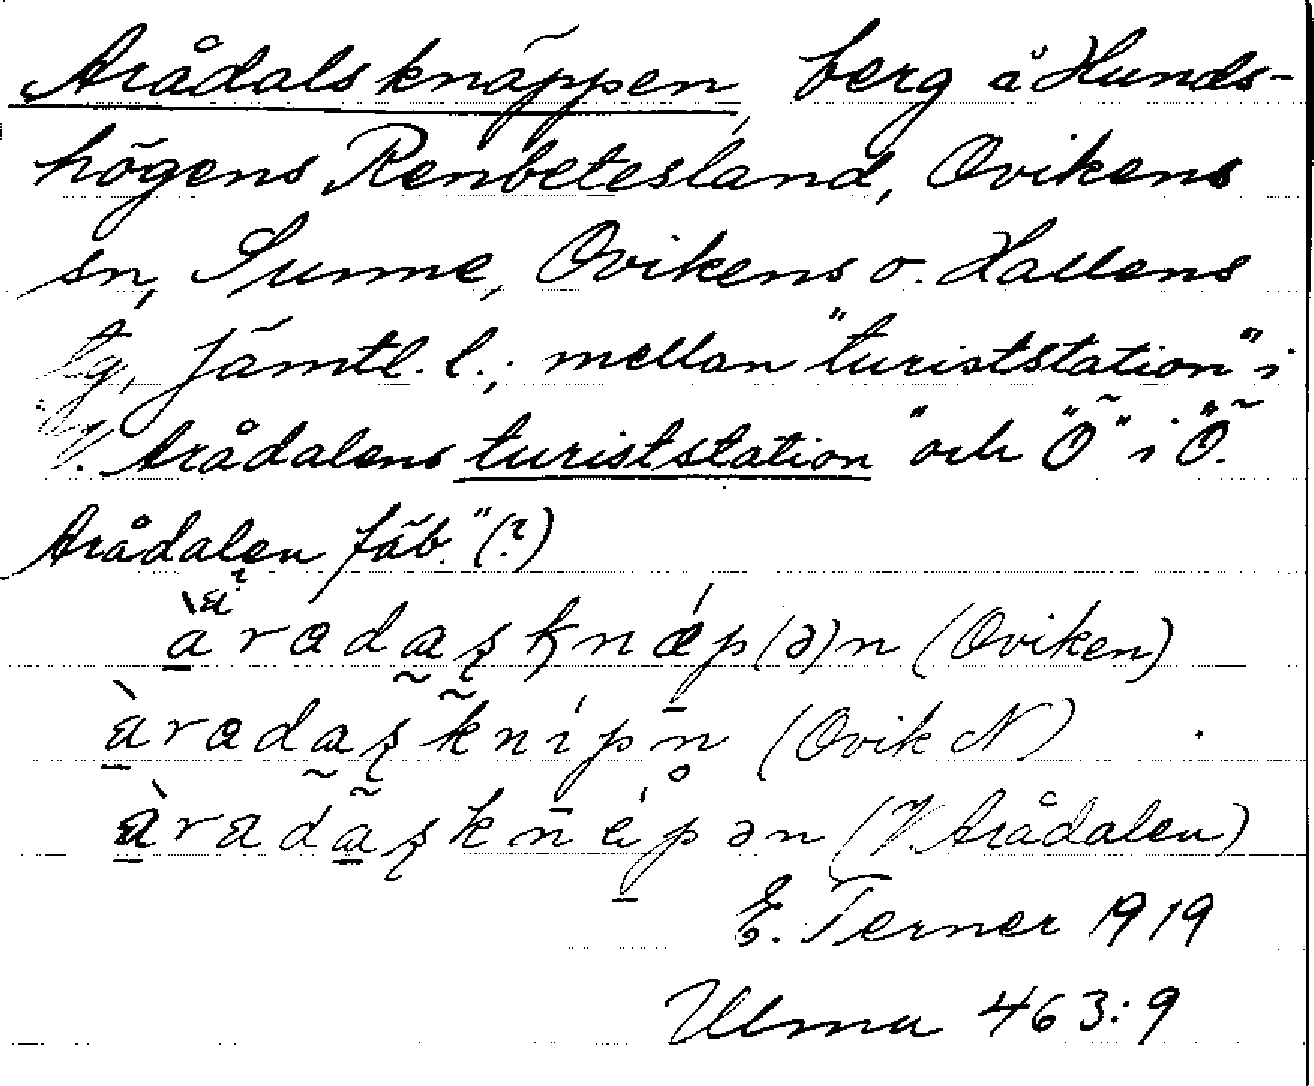 Arådalsknäppen, berg å Hunds-
högens Renbetesland, Ovikens
sn, Sunne, Ovikens o. Hallens
tg, Jämtl. l.; mellan "turiststation" i
V. Arådalens turiststation "och "Ö" i "Ö.
Arådalen fäb." (?)
àradaʂknǽp(ə)n (Oviken)
àradaʂknípn̥ (Ovik N)
àradaʂknépən (V Arådalen)
E. Terner 1919
Ulma 463:9